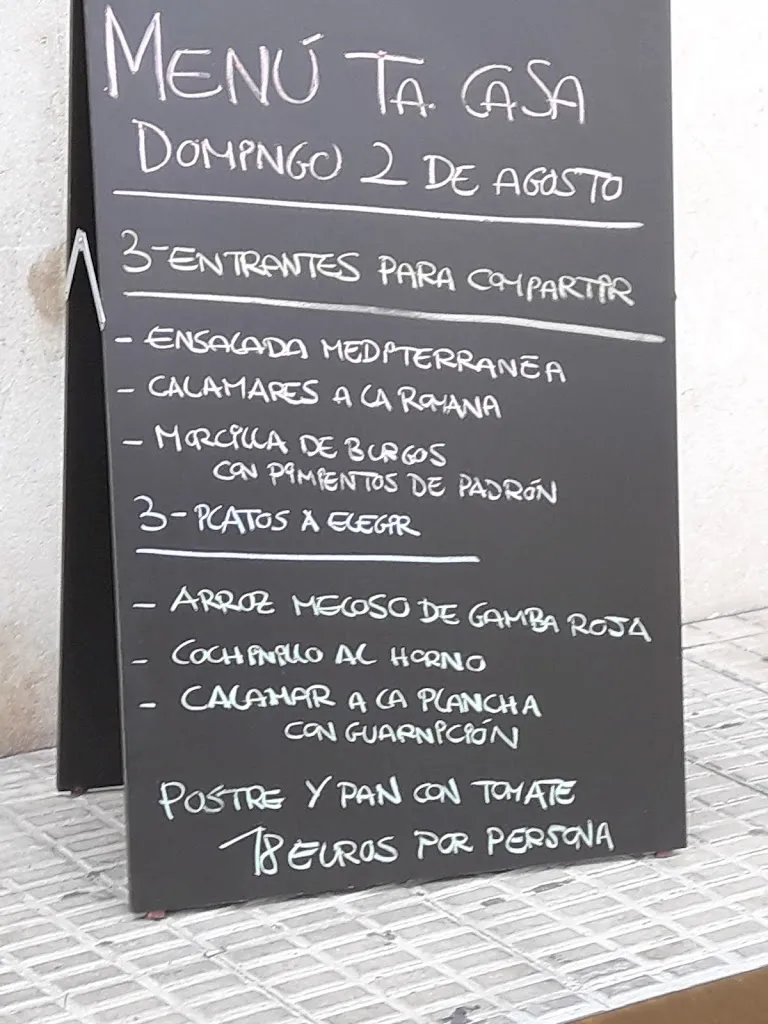 MENÚ TA CASA
DOMINGO 2 DE AGOSTO
3-ENTRANTES PARA COMPARTIR
- ENSALADA MEDITERRANEA
- CALAMARES A LA ROMANA
- MORCILLA DE BURGOS
CON PIMIENTOS DE PADRÓN
3- PLATOS A ELEGIR
- ARROZ MELOSO DE GAMBA ROJA
- COCHINILLO AL HORNO
- CALAMAR A LA PLANCHA
CON GUARNICIÓN
POSTRE Y PAN CON TOMATE
18 EUROS POR PERSONA